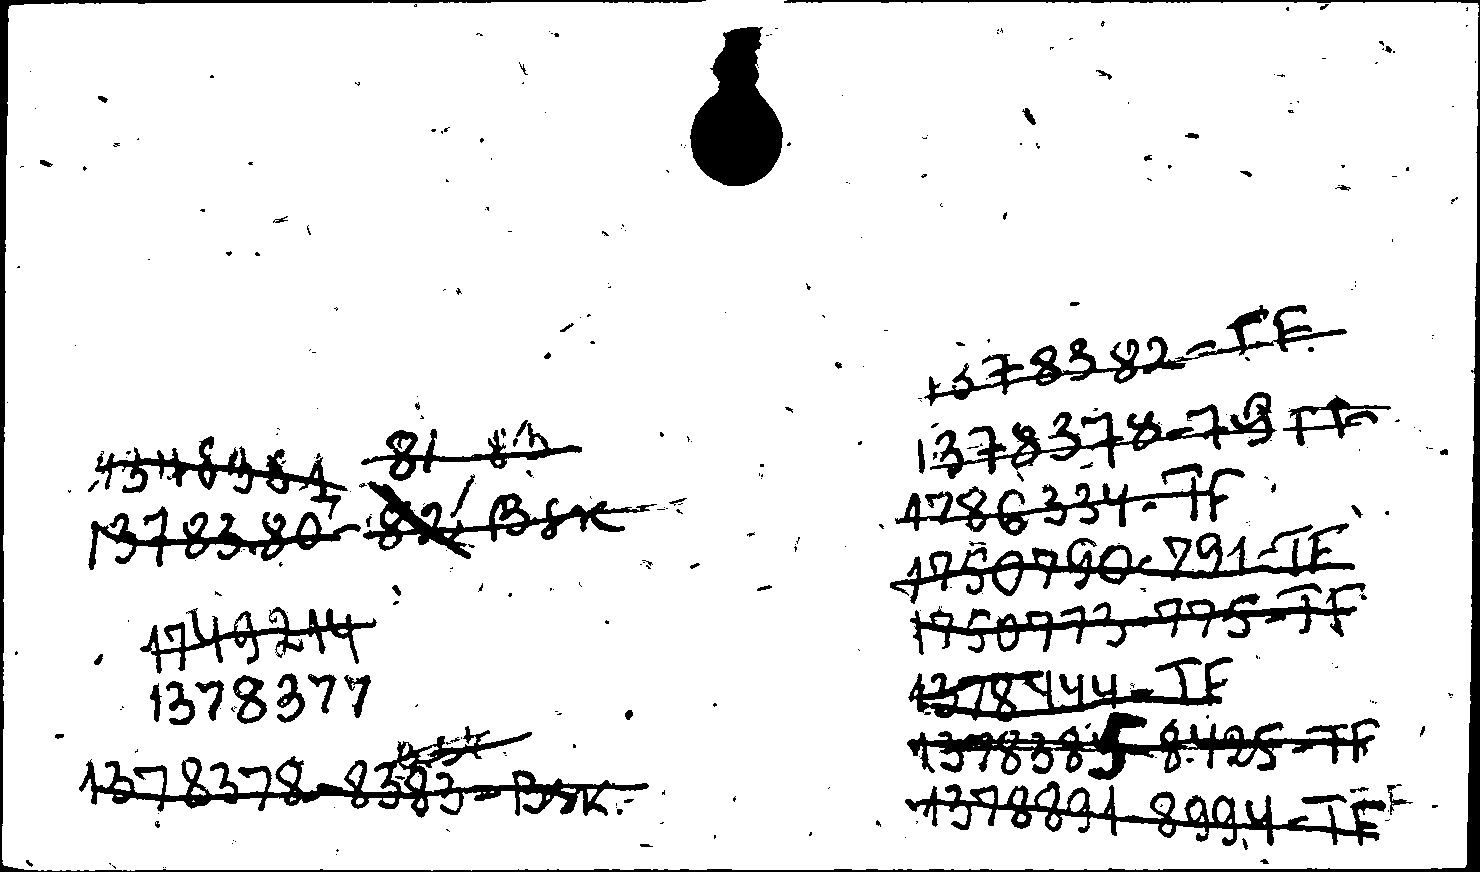 1378381 81 83
1378380 - 82! Bsk
1749214
1378377
Bsk
1378378 - 8383 = Bsk.
1378382 - TF.
1378378 - 79 TF
1786334 - TF
1750790 - 791 - TF
1750773 - 775 - TF
1378444 - TF
1378385 - 8425 - TF
1378891 - 8994 - TF